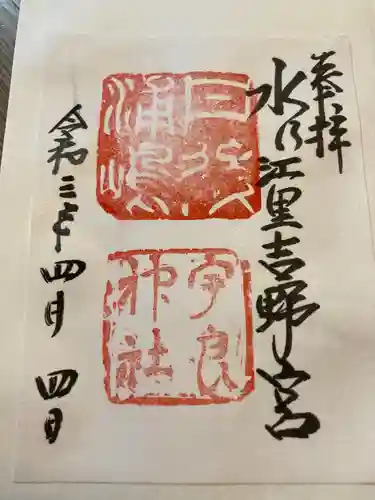 奉拝
水乃江里吉野宮
浦嶋
宇良
神社
令和三年四月四日